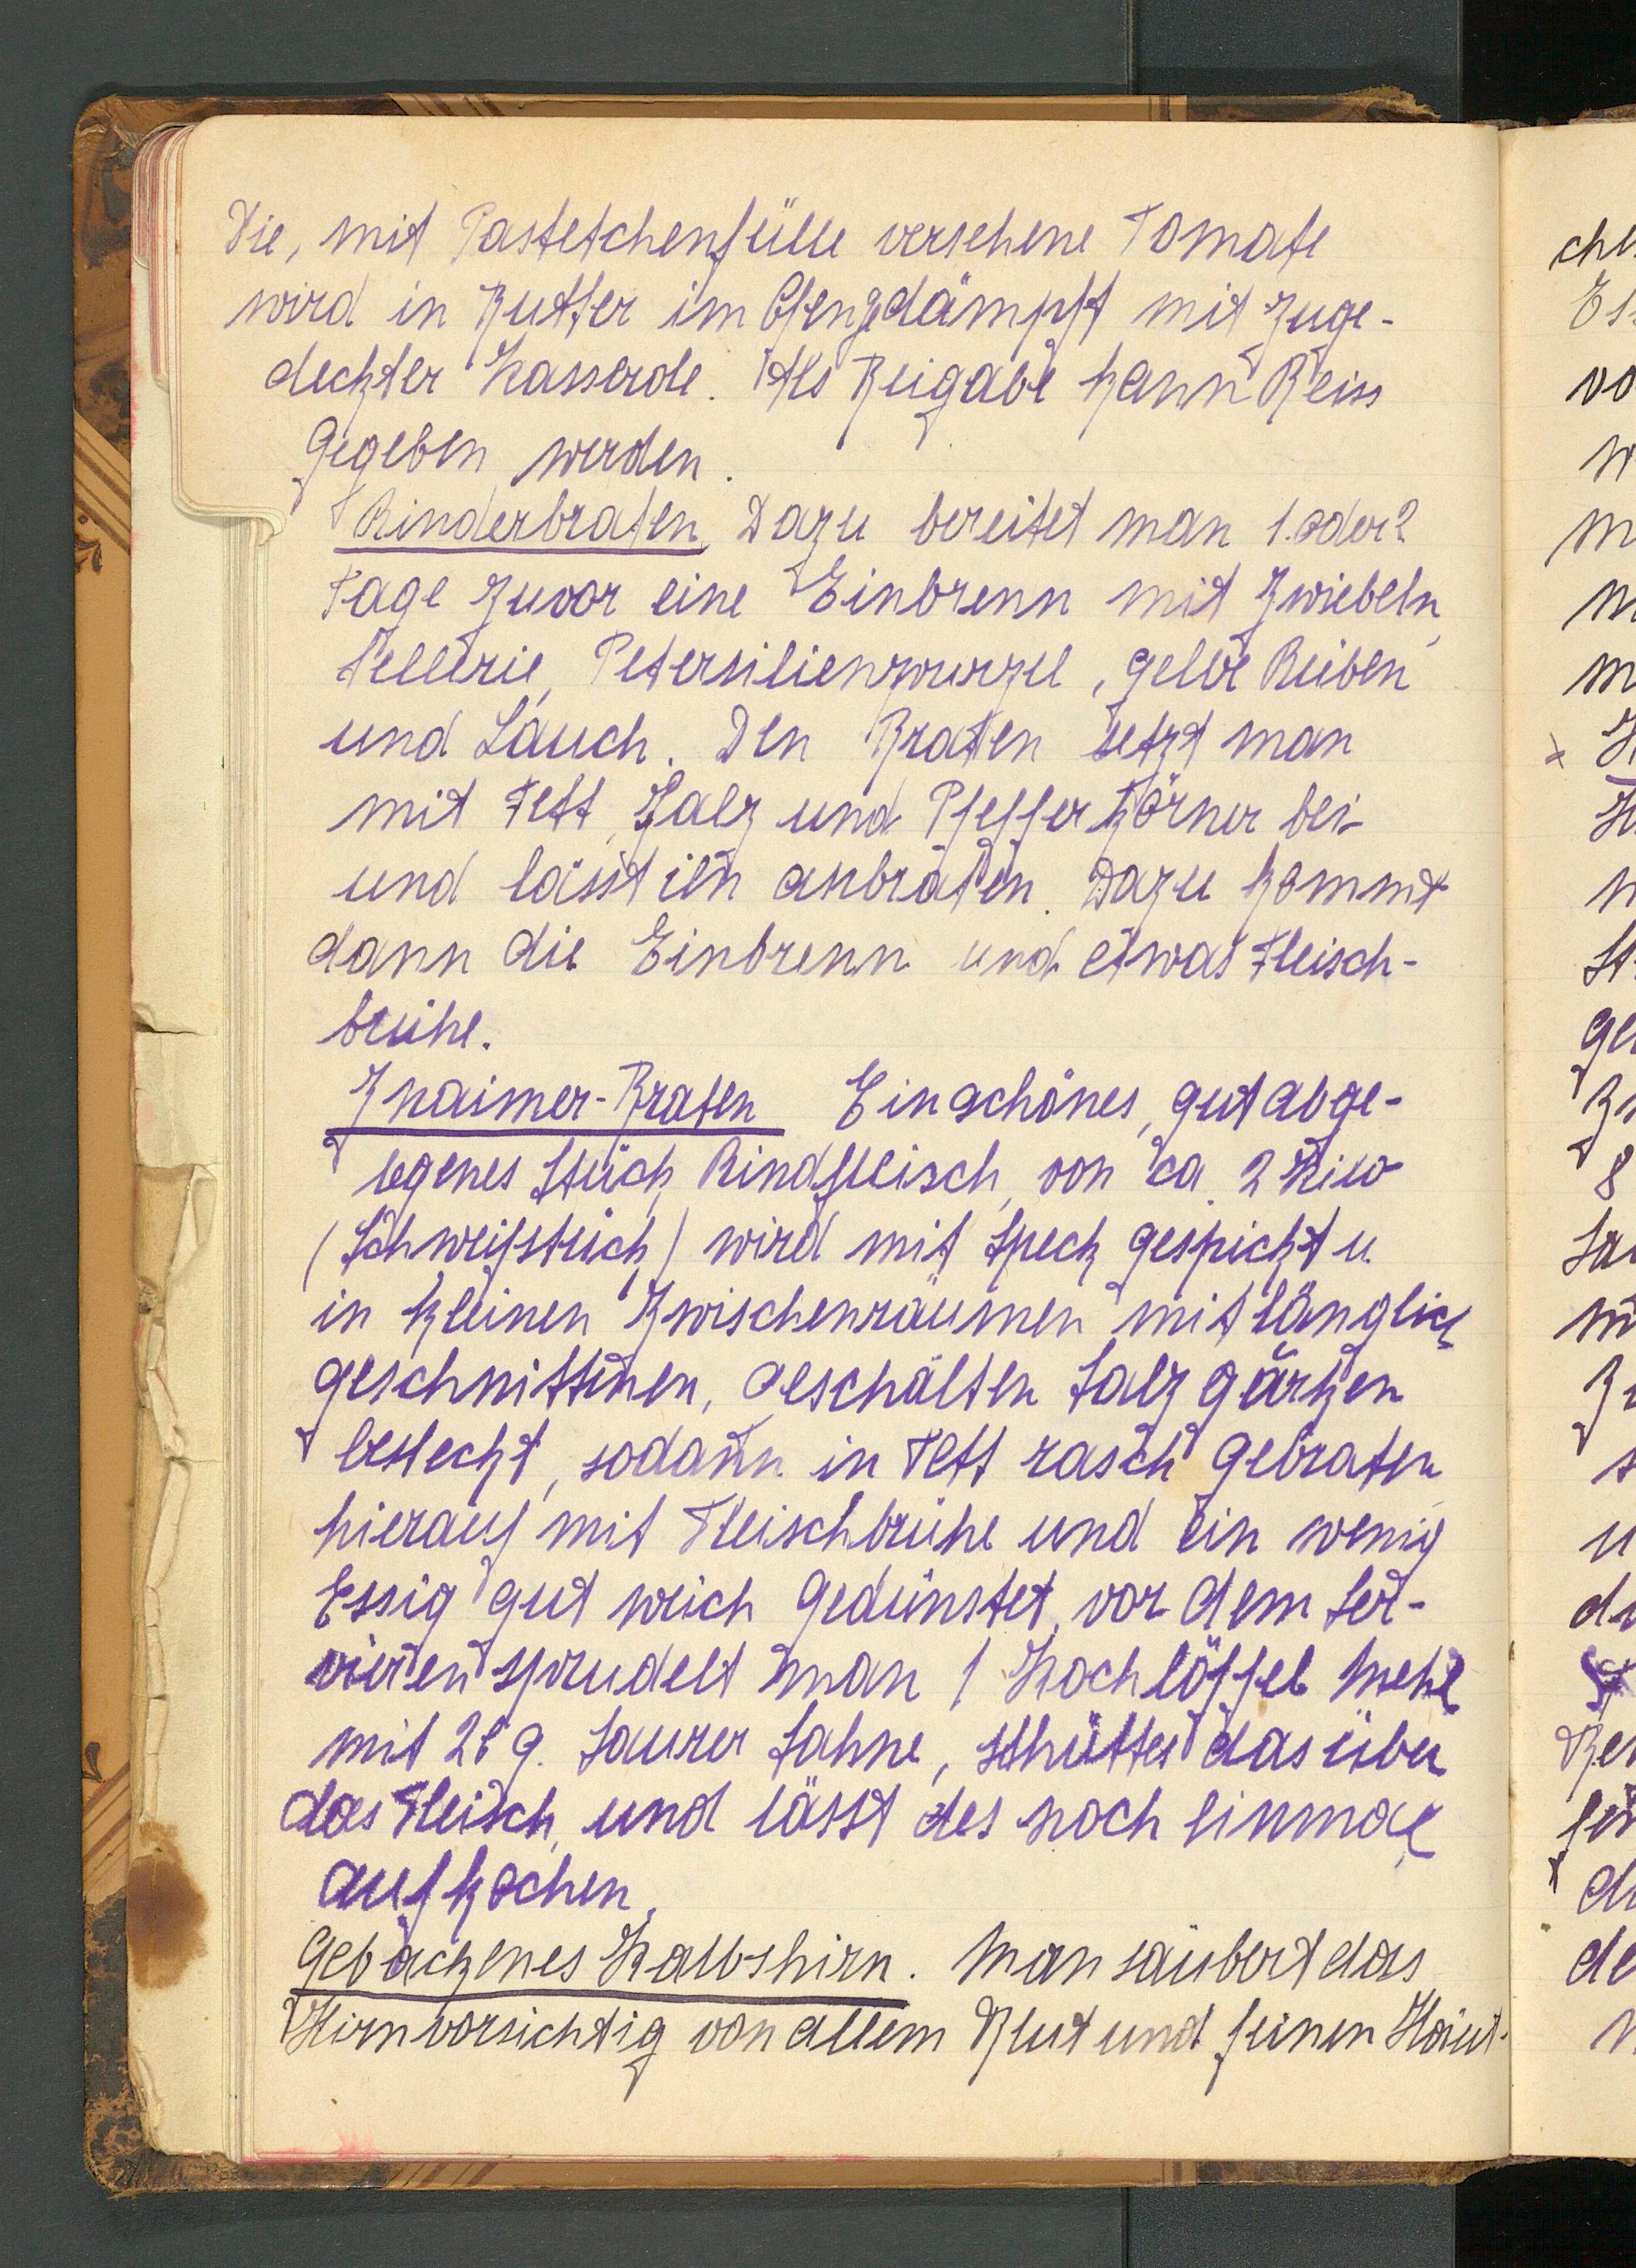 Die, mit Pastetchenfülle versehene Tomate
wird in Butter im Ofen gedämpft mit zuge-
deckter Kasserole. Als Beigabe kann Reiss
gegeben werden.
Rinderbraten. Dazu bereitet man 1 oder 2
Tage zuvor eine Einbrenn mit Zwiebeln,
Sellerie, Petersilienwurzel, gelbe Rüben
und Lauch. Den Braten setzt man
mit Fett, Salz und Pfefferkörner bei
und lässt ihn anbraten. Dazu kommt
dann die Einbrenn und etwas Fleisch-
brühe.
Znaimer-Braten Ein schönes, gut abge-
legenes Stück Rindfleisch, von ca. 2 Kilo
(Schweifstück) wird mit Speck gespickt u.
in kleinen Zwischenräumen mit länglich
geschnittenen, geschälten Salzgurken
besteckt, sodann in Fett rasch gebraten
hierauf mit Fleischbrühe und ein wenig
Essig gut weich gedünstet, vor dem Ser-
vieren sprudelt man 1 Kochlöffel Mehl
mit 28 g. saurer Sahne, schüttet das über
das Fleisch, und lässt es noch einmal
aufkochen.
Gebackenes Kalbshirn. Man säubert das
Hirn vorsichtig von allem Blut und feinen Häut-